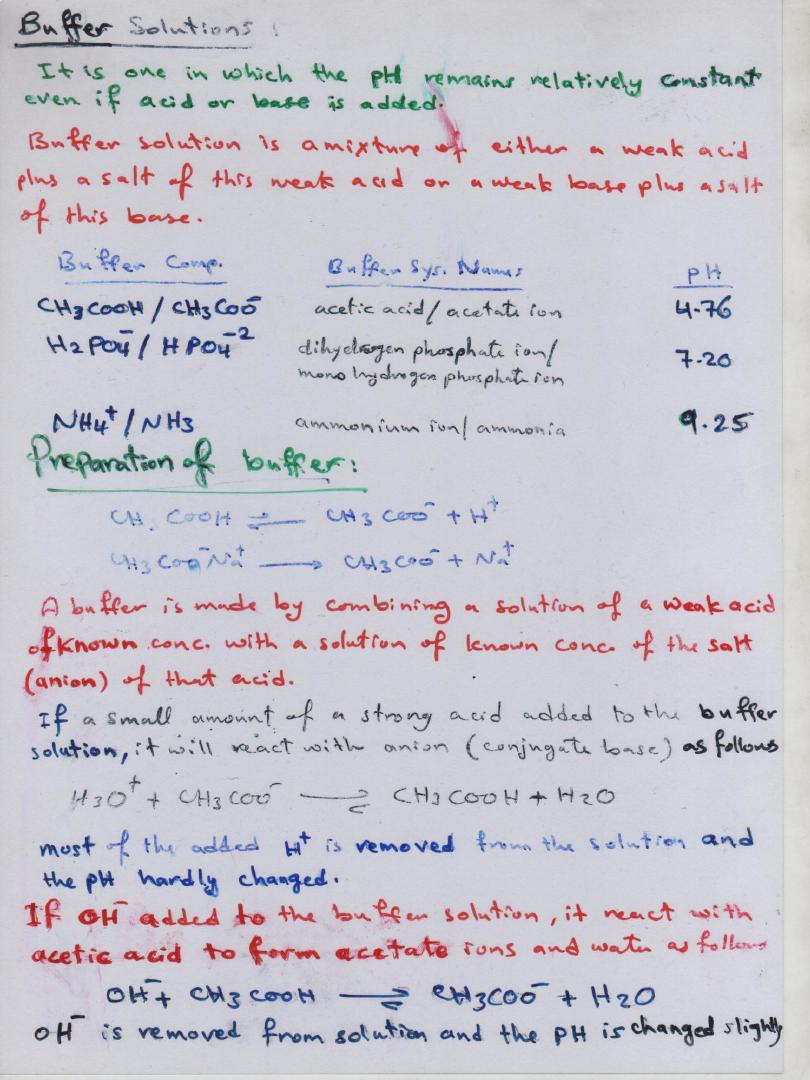 Buffer Solutions :
It is one in which the pH remains relatively constant
even if acid or base is added.
Buffer solution is a mixture of either a weak acid
plus a salt of this weak acid or a weak base plus a salt
of this base.
Buffer Comp. Buffer Sys. Names pH
CH3COOH / CH3COO⁻ acetic acid / acetate ion 4.76
H2PO4⁻ / HPO4⁻² dihydrogen phosphate ion/ 7.20
mono hydrogen phosphate ion
NH4⁺ / NH3 ammonium ion / ammonia 9.25
Preparation of buffer :
CH3COOH ⇌ CH3COO⁻ + H⁺
CH3COO⁻Na⁺ ⟶ CH3COO⁻ + Na⁺
A buffer is made by combining a solution of a weak acid
of known conc. with a solution of known conc. of the salt
(anion) of that acid.
If a small amount of a strong acid added to the buffer
solution, it will react with anion (conjugate base) as follows
H3O⁺ + CH3COO⁻ ⇌ CH3COOH + H2O
most of the added H⁺ is removed from the solution and
the pH hardly changed.
If OH⁻ added to the buffer solution, it react with
acetic acid to form acetate ions and water as follows
OH⁻ + CH3COOH ⇌ CH3COO⁻ + H2O
OH⁻ is removed from solution and the pH is changed slightly